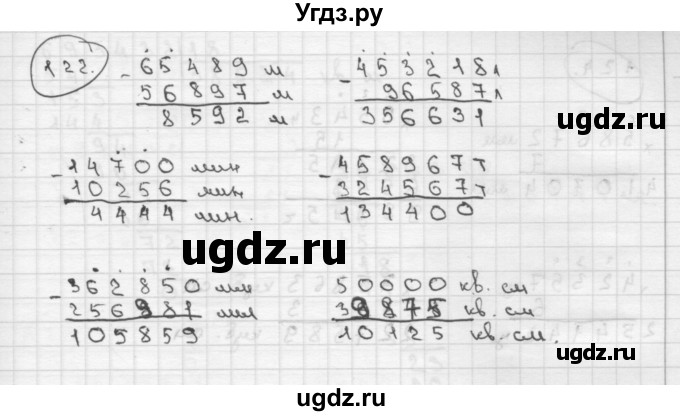 Угдз.ру
122.
- 65489 м
56897 м
8592 м
- 453218 л
96587 л
356631
- 14700 мин
10256 мин
4444 мин.
- 458967 т
324567 т
134400
ugdz.ru
- 362850 мм
мм
105859
50000 кв. см
39875 кв. см
10125 кв. см.
ugdz.ru
ugdz.ru